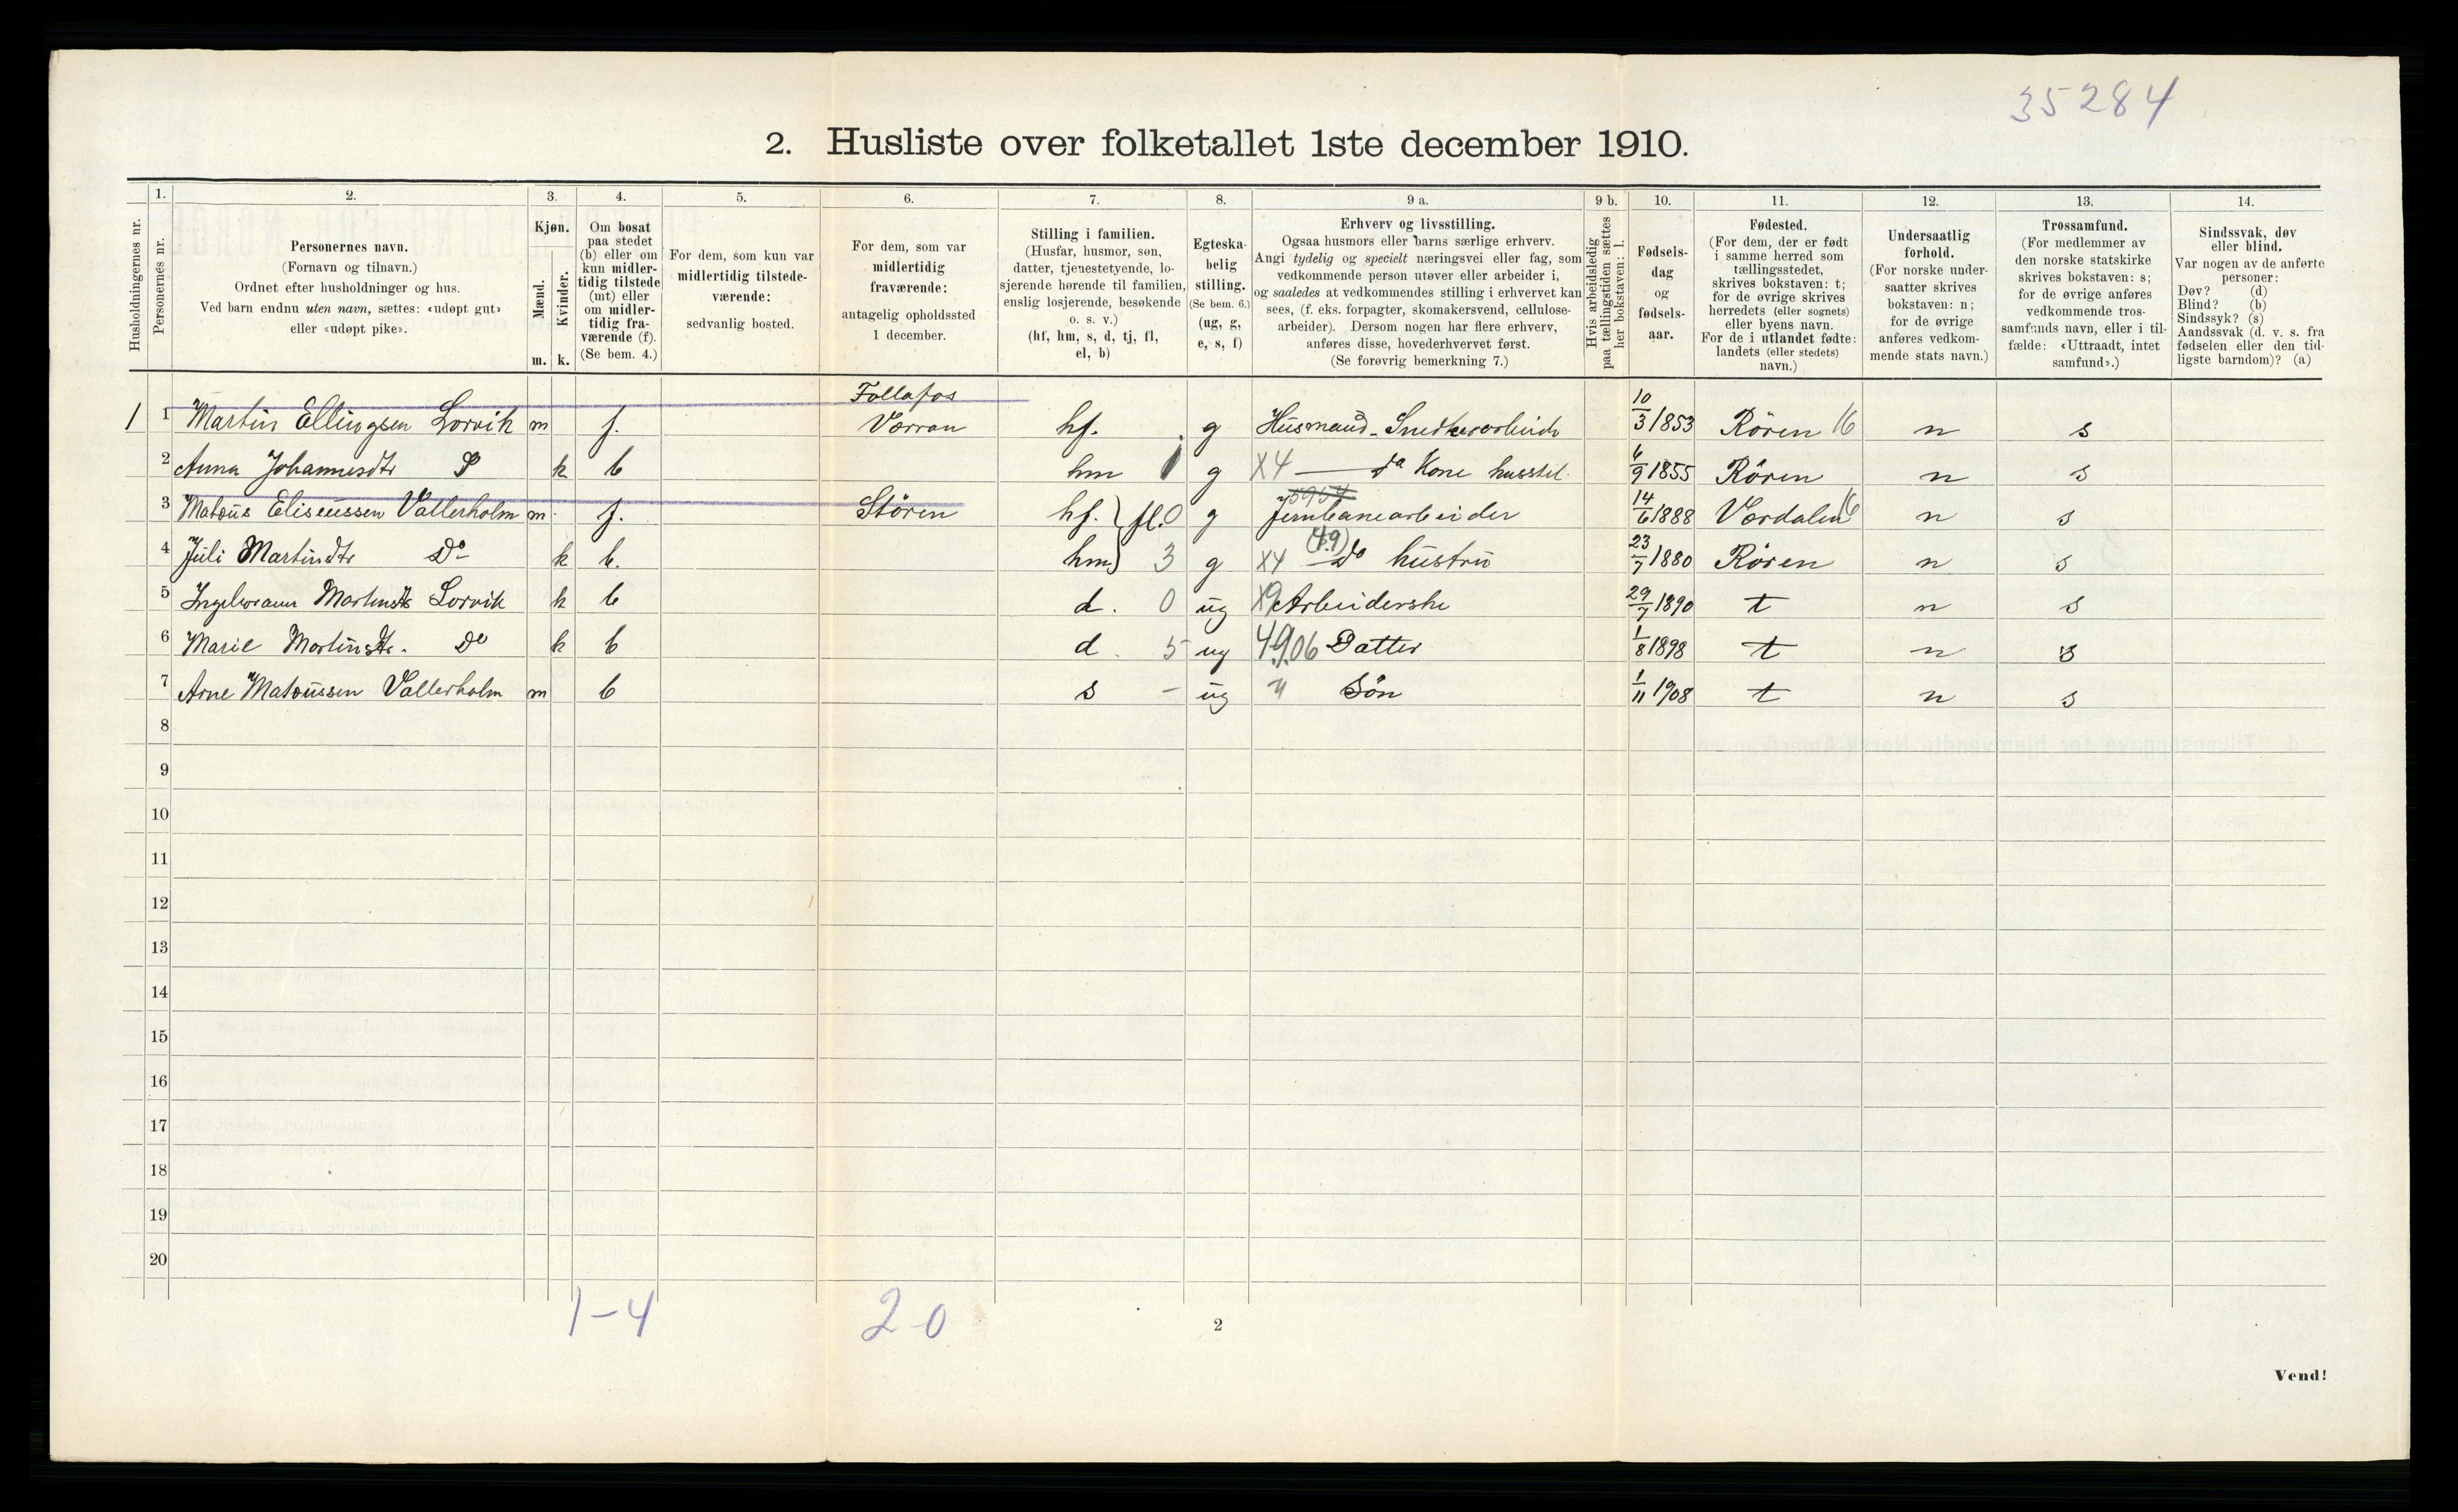 35284
2. Husliste over folketallet 1ste december 1910.
1. 2. 3. 4. 5. 6. 7. 8. 9 a. 9 b. 10. 11. 12. 13. 14.
Husholdningernes nr.
Personernes nr.
Personernes navn.
(Fornavn og tilnavn.)
Ordnet efter husholdninger og hus.
Ved barn endnu uten navn, sættes: «udøpt gut»
eller «udøpt pike».
Kjøn.
Mænd.
Kvinder.
m. k.
Om bosat
paa stedet
(b) eller om
kun midler-
tidig tilstede
(mt) eller
om midler-
tidig fra-
værende (f).
(Se bem. 4.)
For dem, som kun var
midlertidig tilstede-
værende:
sedvanlig bosted.
For dem, som var
midlertidig
fraværende:
antagelig opholdssted
1 december.
Stilling i familien.
(Husfar, husmor, søn,
datter, tjenestetyende, lo-
sjerende hørende til familien,
enslig losjerende, besøkende
o. s. v.)
(hf, hm, s, d, tj, fl,
el, b)
Egteska-
belig
stilling.
(Se bem. 6.)
(ug, g,
e, s, f)
Erhverv og livsstilling.
Ogsaa husmors eller barns særlige erhverv.
Angi tydelig og specielt næringsvei eller fag, som
vedkommende person utøver eller arbeider i,
og saaledes at vedkommendes stilling i erhvervet kan
sees, (f. eks. forpagter, skomakersvend, cellulose-
arbeider). Dersom nogen har flere erhverv,
anføres disse, hovederhvervet først.
(Se forøvrig bemerkning 7.)
Hvis arbeidsledig
paa tællingstiden sættes
her bokstaven: l.
Fødsels-
dag
og
fødsels-
aar.
Fødested.
(For dem, der er født
i samme herred som
tællingsstedet,
skrives bokstaven: t;
for de øvrige skrives
herredets (eller sognets)
eller byens navn.
For de i utlandet fødte:
landets (eller stedets)
navn.)
Undersaatlig
forhold.
(For norske under-
saatter skrives
bokstaven: n;
for de øvrige
anføres vedkom-
mende stats navn.)
Trossamfund.
(For medlemmer av
den norske statskirke
skrives bokstaven: s;
for de øvrige anføres
vedkommende tros-
samfunds navn, eller i til-
fælde: «Uttraadt, intet
samfund».)
Sindssvak, døv
eller blind.
Var nogen av de anførte
personer:
Døv? (d)
Blind? (b)
Sindssyk? (s)
Aandssvak (d. v. s. fra
fødselen eller den tid-
ligste barndom)? (a)
Follafos
1 1 Martin Ellingsen Lorvik m f. Værran hf. g Husmand Snedkerarbeide 10/3 1853 Rören 16 n s
2 Anna Johannesdtr k b hm 1 g X4 — do Kone husstel. 6/9 1855 Rören n s
3 Matæus Eliseussen Vallerholm m f. Stören hf. fl. 0 g 5954 Jernbanearbeider 14/6 1888 Værdalen 16 n s
4 Juli Martindtr Do k b. hm 3 g X4 (4.9) do hustru 23/7 1880 Rören n s
5 Ingeborann Martinsdtr Lorvik k b d. 0 ug X9 Arbeiderske 29/7 1890 t n s
6 Marie Martinsdtr. Do k b d. 5 ug 4.9.06 Datter 1/8 1898 t n s
7 Arne Matæussen Vallerholm m b s - ug " Sön 1/11 1908 t n s
8
9
10
11
12
13
14
15
16
17
18
19
20
1-4 2-0
2
Vend!